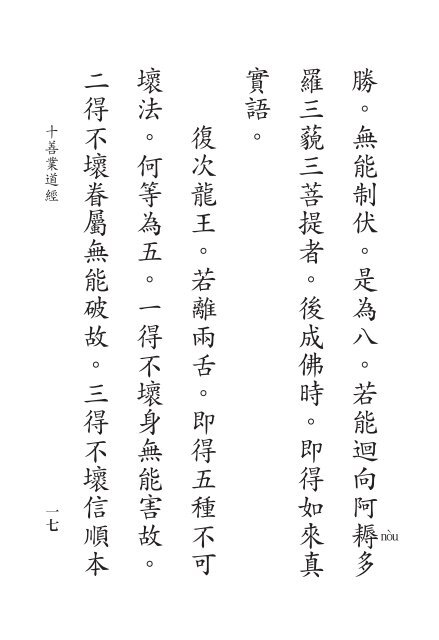 勝。無能制伏。是為八。若能迴向阿耨多
nòu
羅三藐三菩提者。後成佛時。即得如來真
實語。
復次龍王。若離兩舌。即得五種不可
壞法。何等為五。一得不壞身無能害故。
二得不壞眷屬無能破故。三得不壞信順本
十善業道經
一七